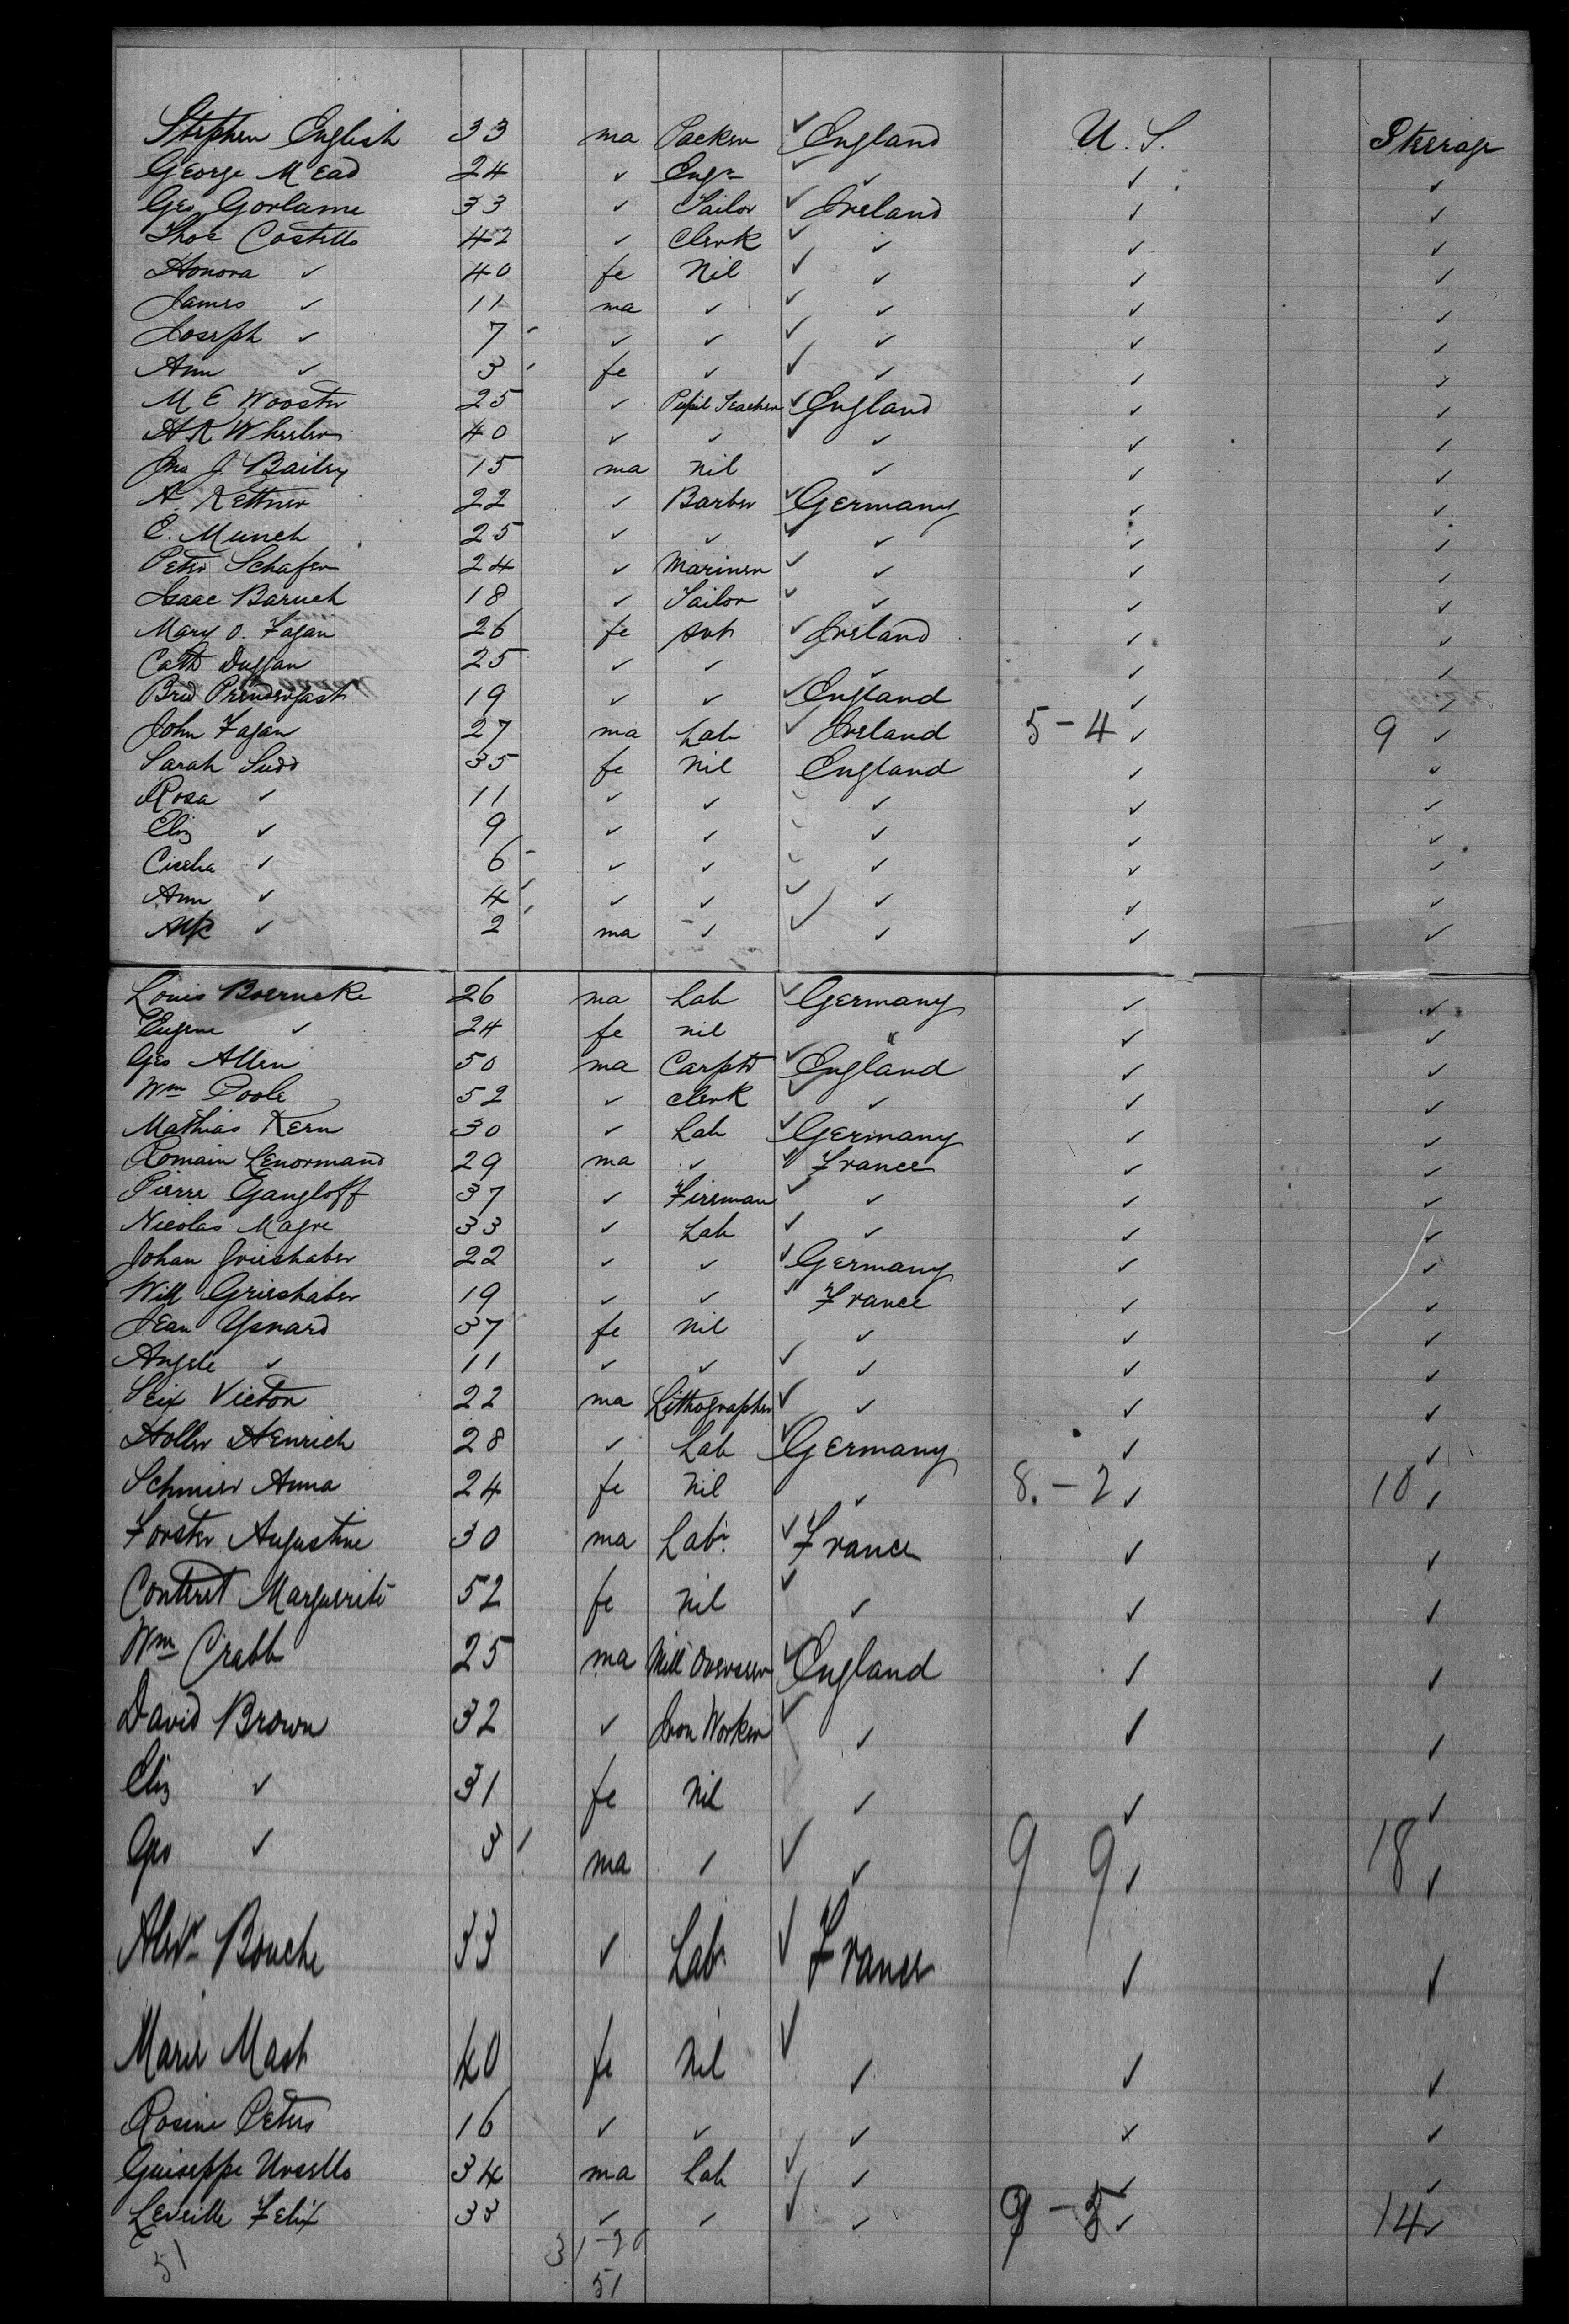 Stephen English 33 ma Packer ✓ England U.S. Steerage
George Mead 24 ✓ Engr ✓ ✓ ✓ ✓
Geo Gorlame 33 ✓ Tailor ✓ Ireland ✓ ✓
Thos Costello 42 ✓ Clerk ✓ ✓ ✓ ✓
Honora ✓ 40 fe Nil ✓ ✓ ✓ ✓
James ✓ 11 ma ✓ ✓ ✓ ✓ ✓
Joseph ✓ 7 ✓ ✓ ✓ ✓ ✓ ✓
Ann ✓ 3 fe ✓ ✓ ✓ ✓ ✓
M E Wooster 25 ✓ Pupil Teacher ✓ England ✓ ✓
A R Wheeler 40 ✓ ✓ ✓ ✓ ✓ ✓
Jno J. Bailey 15 ma nil ✓ ✓ ✓
A. Kettner 22 ✓ Barber ✓ Germany ✓ ✓
C. Munch 25 ✓ ✓ ✓ ✓ ✓ ✓
Peter Schafer 24 ✓ Mariner ✓ ✓ ✓ ✓
Isaac Baruch 18 ✓ Tailor ✓ ✓ ✓ ✓
Mary O. Fagan 26 fe Svt ✓ Ireland ✓ ✓
Cath Duggan 25 ✓ ✓ ✓ ✓ ✓ ✓
Brid Prendergast 19 ✓ ✓ ✓ England ✓ ✓
John Fagan 27 ma Lab ✓ Ireland 5-4 ✓ 9 ✓
Sarah Sudd 35 fe Nil England ✓ ✓
Rosa ✓ 11 ✓ ✓ ✓ ✓ ✓ ✓
Eliz ✓ 9 ✓ ✓ ✓ ✓ ✓ ✓
Cicelia ✓ 6 ✓ ✓ ✓ ✓ ✓ ✓
Ann ✓ 4 ✓ ✓ ✓ ✓ ✓ ✓
Alf ✓ 2 ma ✓ ✓ ✓ ✓ ✓
Louis Boerneke 26 ma Lab ✓ Germany ✓ ✓
Eugene ✓ 24 fe nil " ✓ ✓
Geo Allen 50 ma Carptr ✓ England ✓ ✓
Wm Poole 52 ✓ Clerk ✓ ✓ ✓ ✓
Mathias Kern 30 ✓ Lab ✓ Germany ✓ ✓
Romain Lenormand 29 ma ✓ ✓ France ✓ ✓
Pierre Gangloff 37 ✓ Fireman ✓ ✓ ✓ ✓
Nicolas Magre 33 ✓ Lab ✓ ✓ ✓ ✓
Johan Grieshaber 22 ✓ ✓ ✓ Germany ✓ ✓
Will Grieshaber 19 ✓ ✓ ✓ France ✓ ✓
Jean Ysnard 37 fe Nil ✓ ✓ ✓
Angele ✓ 11 ✓ ✓ ✓ ✓ ✓ ✓
Seix Victor 22 ma Lithographer ✓ ✓ ✓ ✓
Holler Henrich 28 ✓ Lab ✓ Germany ✓ ✓
Schmier Anna 24 fe Nil ✓ 8.-2 ✓ 10 ✓
Forster Augustine 30 ma Labr. ✓ France ✓ ✓
Conteret Marguerite 52 fe Nil ✓ ✓ ✓ ✓
Wm Crabb 25 ma Mill Overseer ✓ England ✓ ✓
David Brown 32 ✓ Iron Worker ✓ ✓ ✓ ✓
Eliz ✓ 31 fe Nil ✓ ✓ ✓
Geo ✓ 3 ma ✓ ✓ ✓ 9 9 ✓ 18 ✓
Alexr Bouche 33 ✓ Labr ✓ France ✓ ✓
Marie Mast 40 fe Nil ✓ ✓ ✓ ✓
Rosine Peters 16 ✓ ✓ ✓ ✓ ✓
Guiseppe Ursello 34 ma Lab ✓ ✓ ✓ ✓
Leveille Felix 33 ✓ ✓ ✓ ✓ 9-5 ✓ 14 ✓
51 31-20
51